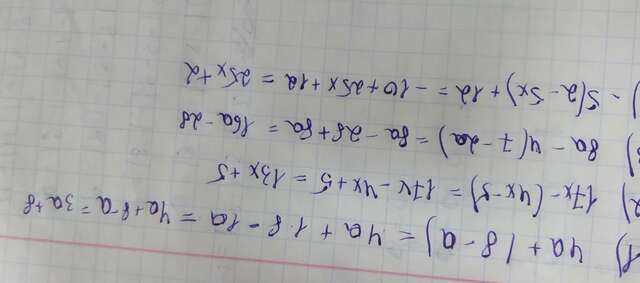 1) 4a + (8 - a) = 4a + 1·8 - 1a = 4a + 8 - a = 3a + 8
2) 17x - (4x - 5) = 17x - 4x + 5 = 13x + 5
3) 8a - 4(7 - 2a) = 8a - 28 + 8a = 16a - 28
) - 5(2 - 5x) + 12 = - 10 + 25x + 12 = 25x + 2